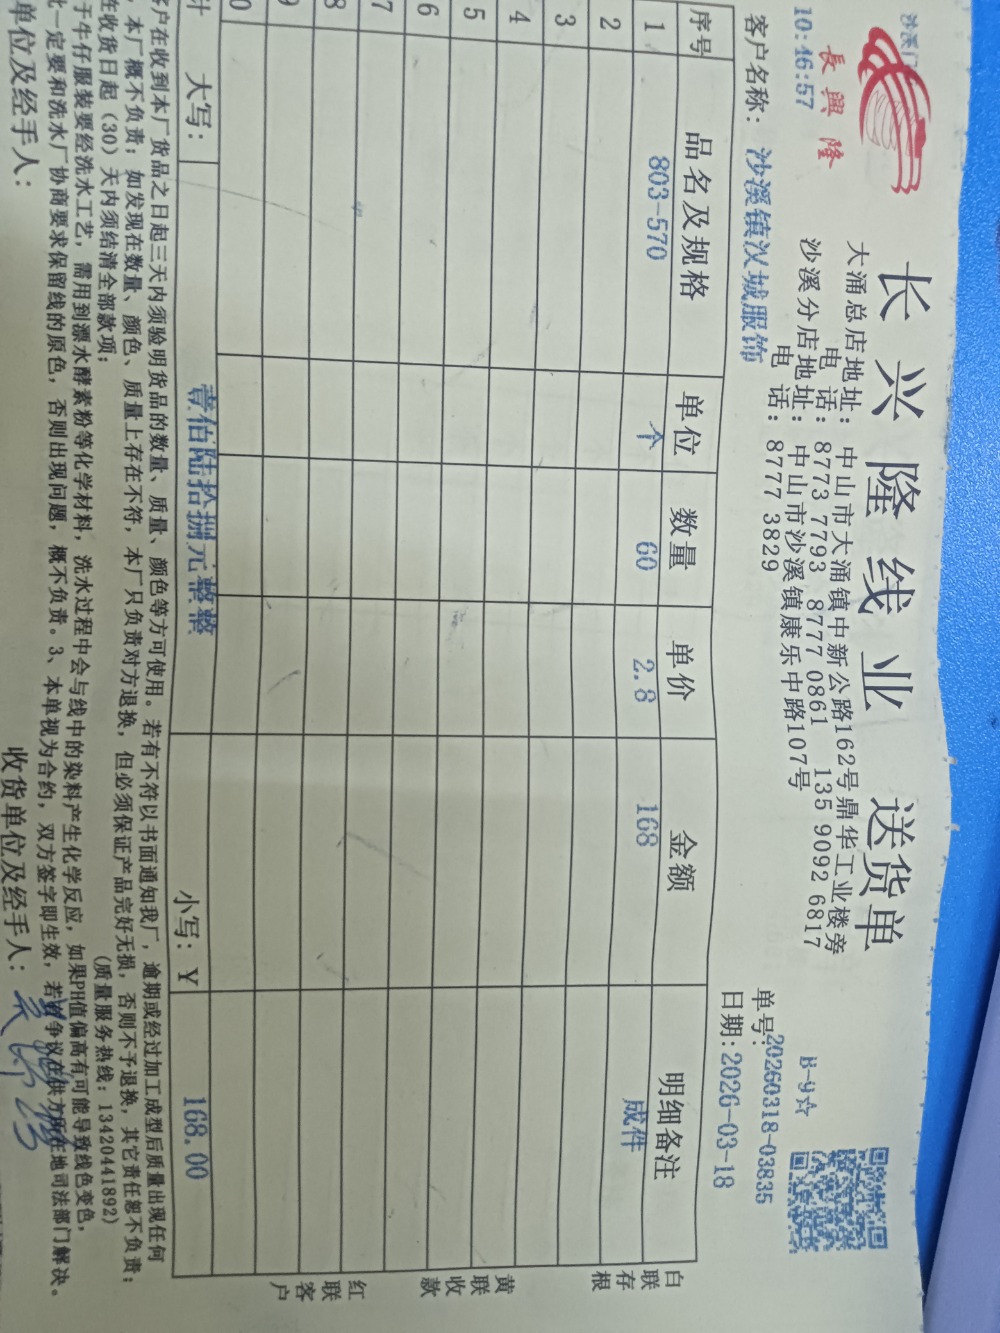 沙溪门
10:46:57
長興隆
长兴隆线业 送货单
大涌总店地址：中山市大涌镇中新公路162号鼎华工业楼旁
电 话：8773 7793 8777 0861 135 9092 6817
沙溪分店地址：中山市沙溪镇康乐中路107号
电 话：8777 3829
B-9☆
客户名称：沙溪镇汉城服饰
单号：20260318-03835
日期：2026-03-18
序号 品名及规格 单位 数量 单价 金额 明细备注
1 803-570 个 60 2.8 168 成件
2
3
4
5
6
7
8
9
0
计 大写： 壹佰陆拾捌元整整 小写：￥ 168.00
白联存根
黄联收款
红联客户
客户在收到本厂货品之日起三天内须验明货品的数量、质量、颜色等方可使用。若有不符以书面通知我厂，逾期或经过加工成型后质量出现任何
，本厂概不负责；如发现在数量、颜色、质量上存在不符，本厂只负责对方退换，但必须保证产品完好无损，否则不予退换，其它责任恕不负责；
在收货日起（30）天内须结清全部款项； （质量服务热线：13420441892）
于牛仔服装要经洗水工艺，需用到漂水酵素粉等化学材料，洗水过程中会与线中的染料产生化学反应，如果PH值偏高有可能导致线色变色，
此一定要和洗水厂协商要求保留线的原色，否则出现问题，概不负责。3、本单视为合约，双方签字即生效，若有争议在供方所在地司法部门解决。
单位及经手人： 收货单位及经手人：